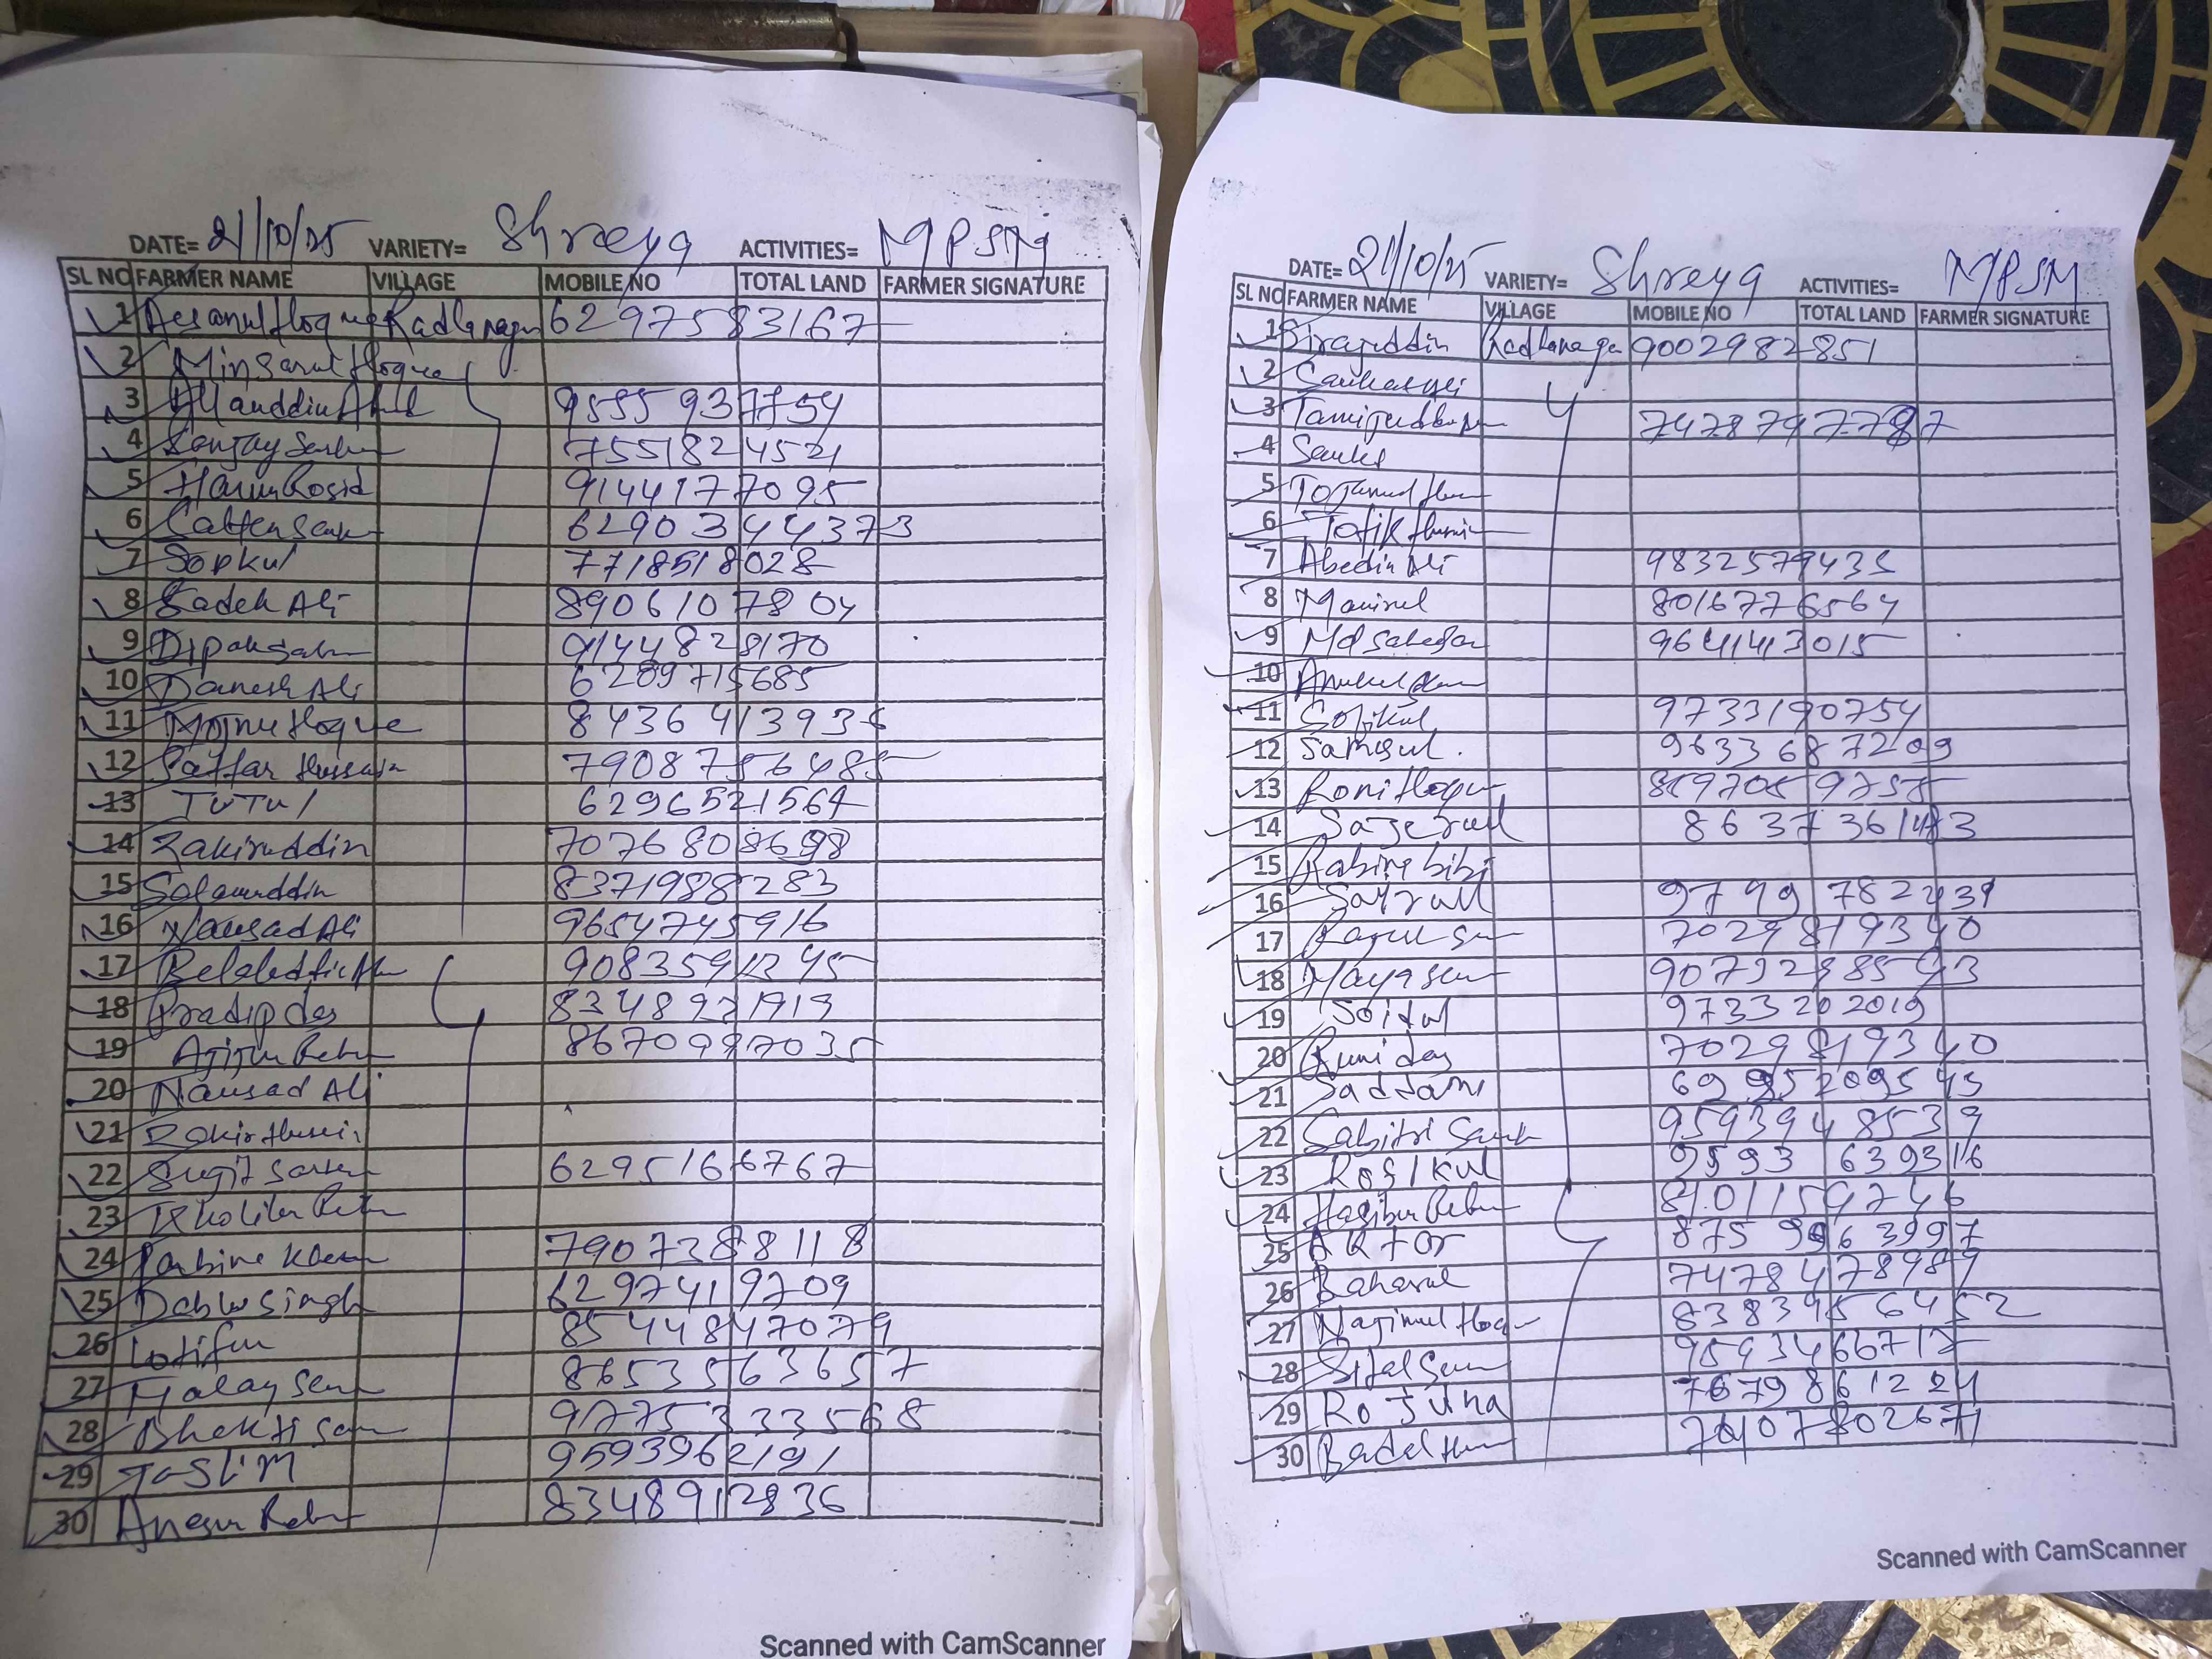 DATE= 21/10/25 VARIETY= Shreya ACTIVITIES= MPSM
SL NO FARMER NAME VILLAGE MOBILE NO TOTAL LAND FARMER SIGNATURE
1 Hoque Radhanagar 6297583167
2 Minsarul Hoque
3 Allauddin 9555937754
4 Sanjay Sarkar 7551824521
5 Harun Rosid 9144177095
6 6290344373
7 Sopkul 7718518028
8 Sadek Ali 8906107804
9 Dipak 9144828170
10 Danesh Ali 6289715685
11 Mojnu Hoque 8436413936
12 Sattar Hussain 7908756485
13 TUTUl 6296521564
14 Zakiruddin 7076808698
15 Solauddin 8371988283
16 Nausad Ali 9654745916
17 9083591245
18 Pradip das 8348921919
19 Ajijur Rahman 8670997035
20 Nausad Ali
21 Zakir Husein
22 Sujit Sarkar 6295166767
23
24 7907388118
25 Dablu Singh 6297419709
26 Lotifur 8544847079
27 Malay 8653563657
28 Bhakti 9775333568
29 TaSLiM 9593962191
30 8348912836
Scanned with CamScanner
DATE= 21/10/25 VARIETY= Shreya ACTIVITIES= MPSM
SL NO FARMER NAME VILLAGE MOBILE NO TOTAL LAND FARMER SIGNATURE
1 Sirajuddin Radhanaga 9002982851
2
3 7478797787
4
5
6 Tofik
7 Abedin Ali 9832579435
8 Manirul 8016776564
9 Md 9641413015
10
11 Sofikul 9733190754
12 Samsul. 9633687209
13 Roni Hoque 8597059755
14 Sajerul 863736143
15 Rabina bibi
16 9749782439
17 7029819340
18 Maya 9079298543
19 Soidul 9733202019
20 Runi das 7029819340
21 Saddam 6995209545
22 Sabitri 9593948539
23 Rofikul 9593639316
24 Hasibur 8101159746
25 AKTar 8759963997
26 Baharul 7478478989
27 Najimul Hoque 8383956452
28 9593466717
29 Rojina 7679861224
30 Badal
Scanned with CamScanner